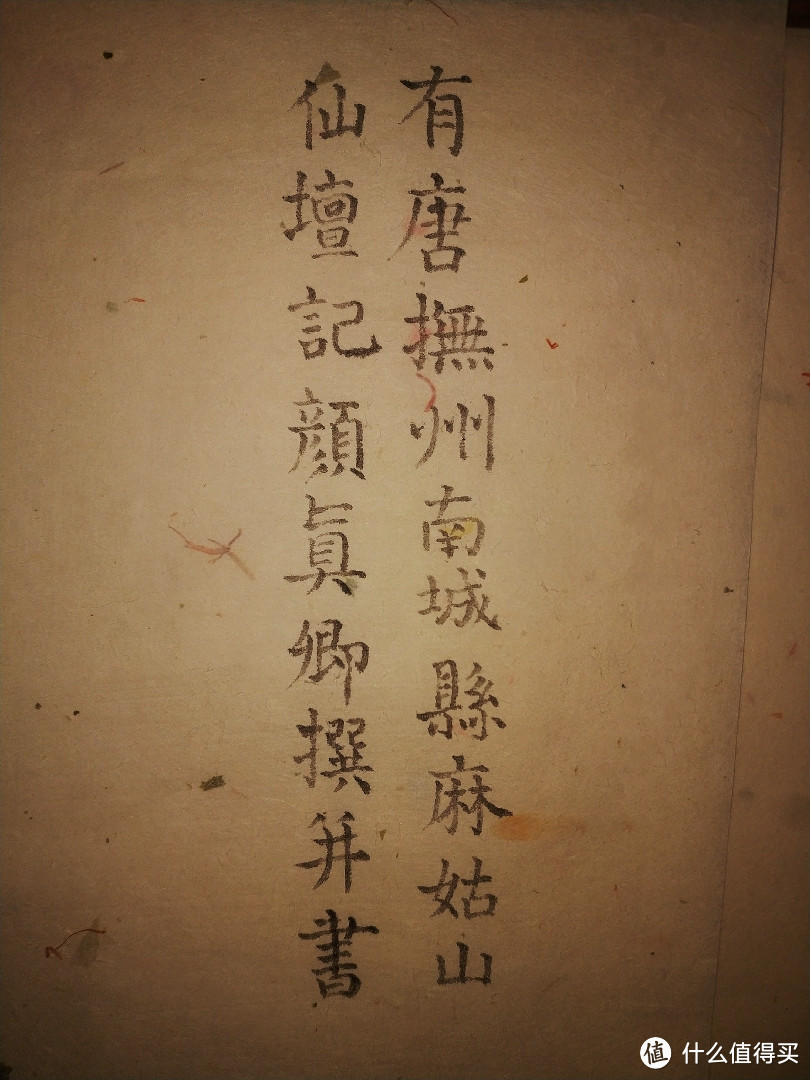 有唐撫州南城縣麻姑山
仙壇記顔真卿撰并書
值 什么值得买